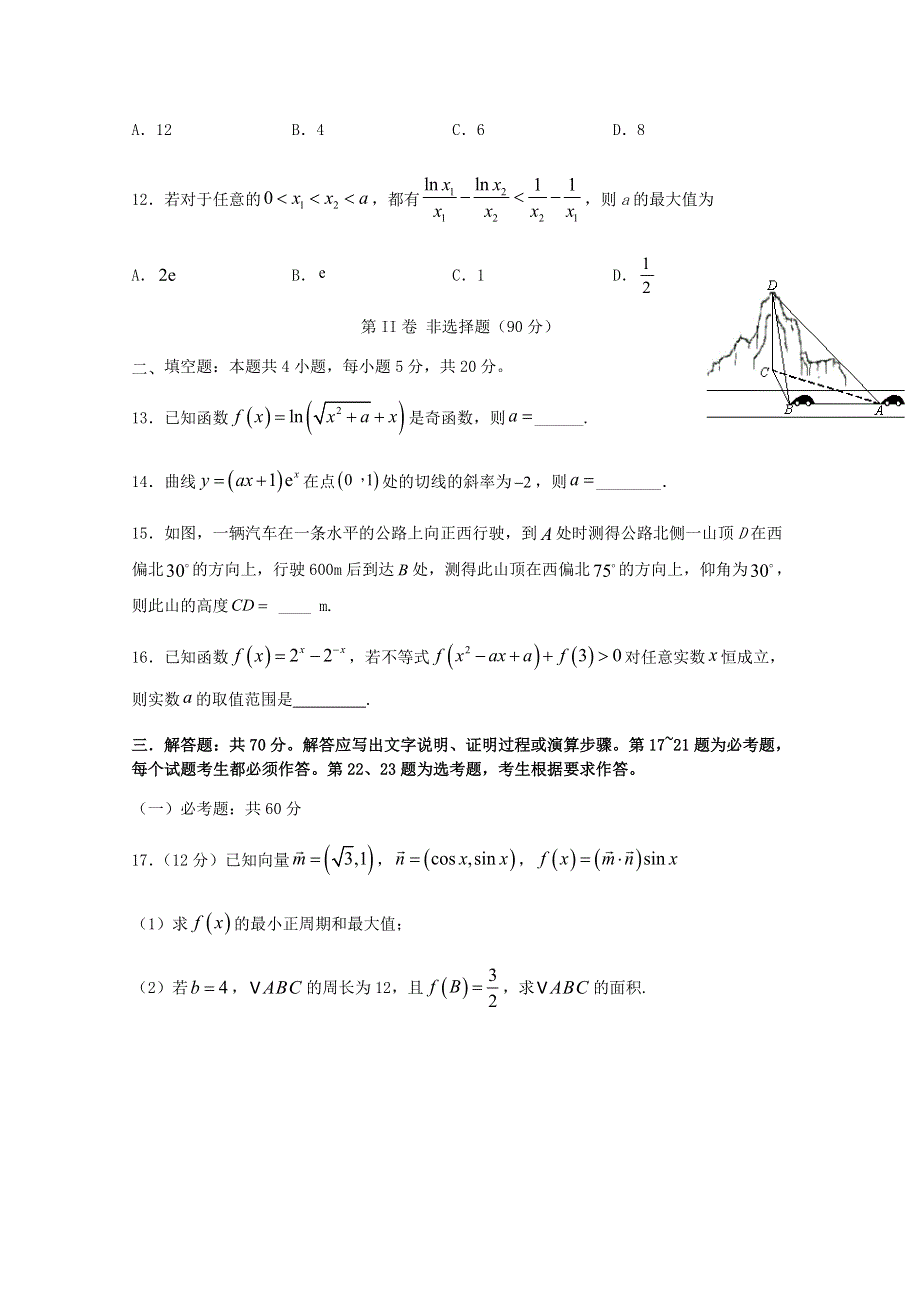 A．12 B．4 C．6 D．8
12．若对于任意的0 < x₁ < x₂ < a，都有 ln x₁/x₁ − ln x₂/x₂ < 1/x₂ − 1/x₁，则 a 的最大值为
A．2e B．e C．1 D．1/2
第 II 卷 非选择题（90 分）
二、填空题：本题共 4 小题，每小题 5 分，共 20 分。
13．已知函数 f(x)=ln(√(x²+a)+x) 是奇函数，则 a=______.
14．曲线 y=(ax+1)eˣ 在点(0，1)处的切线的斜率为−2，则 a=________．
15．如图，一辆汽车在一条水平的公路上向正西行驶，到 A 处时测得公路北侧一山顶 D 在西
偏北30°的方向上，行驶 600m 后到达 B 处，测得此山顶在西偏北75°的方向上，仰角为30°，
则此山的高度CD= ____ m.
D
C
B
A
16．已知函数 f(x)=2ˣ−2⁻ˣ，若不等式 f(x²−ax+a)+f(3)>0 对任意实数 x 恒成立，
则实数 a 的取值范围是_________.
三．解答题：共 70 分。解答应写出文字说明、证明过程或演算步骤。第 17~21 题为必考题，
每个试题考生都必须作答。第 22、23 题为选考题，考生根据要求作答。
（一）必考题：共 60 分
17.（12 分）已知向量 m⃗=(√3,1)，n⃗=(cos x,sin x)，f(x)=(m⃗·n⃗)sin x
（1）求 f(x) 的最小正周期和最大值；
（2）若 b=4，V ABC 的周长为 12，且 f(B)=3/2，求V ABC 的面积.